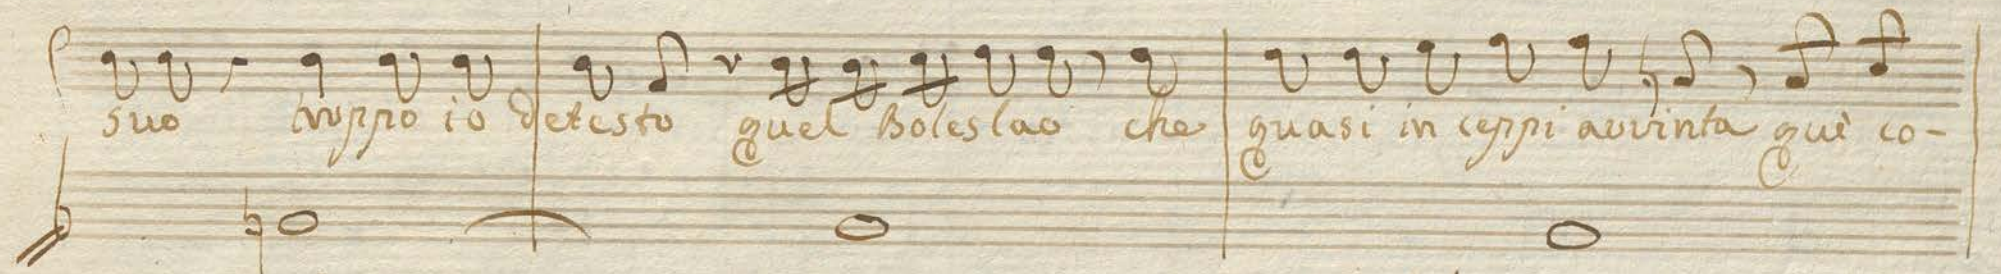 suo troppo io detesto quel Boleslao che quasi in ceppi avvinta quì co-